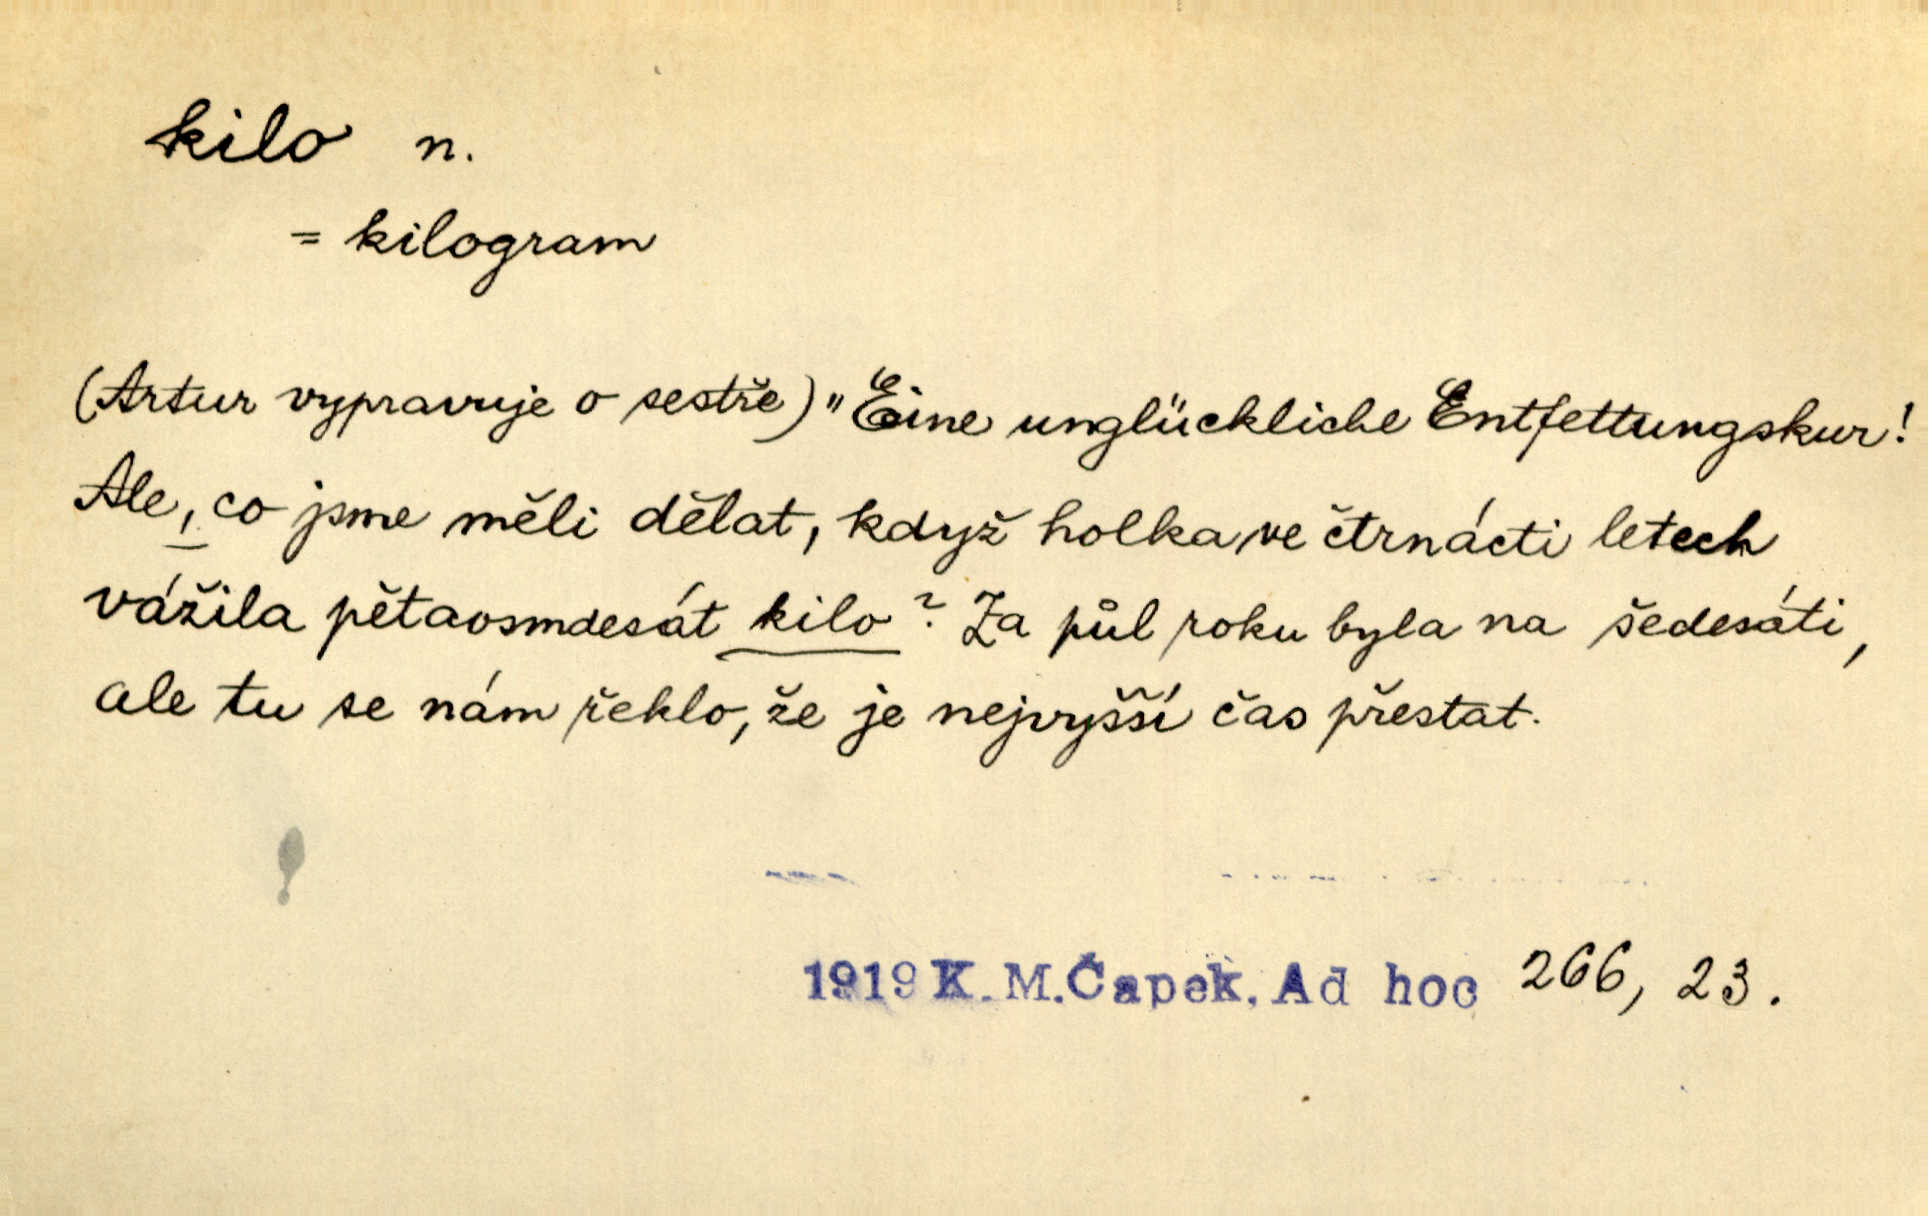 kilo n.
= kilogram
(Artur vypravuje o sestře) "Eine unglückliche Entfettungskur!
Ale, co jsme měli dělat, když holka ve čtrnácti letech
vážila pětaosmdesát kilo? Za půl roku byla na šedesáti,
ale tu se nám řeklo, že je nejvyšší čas přestat.
1919 K. M. Čapek, Ad hoc 266, 23.